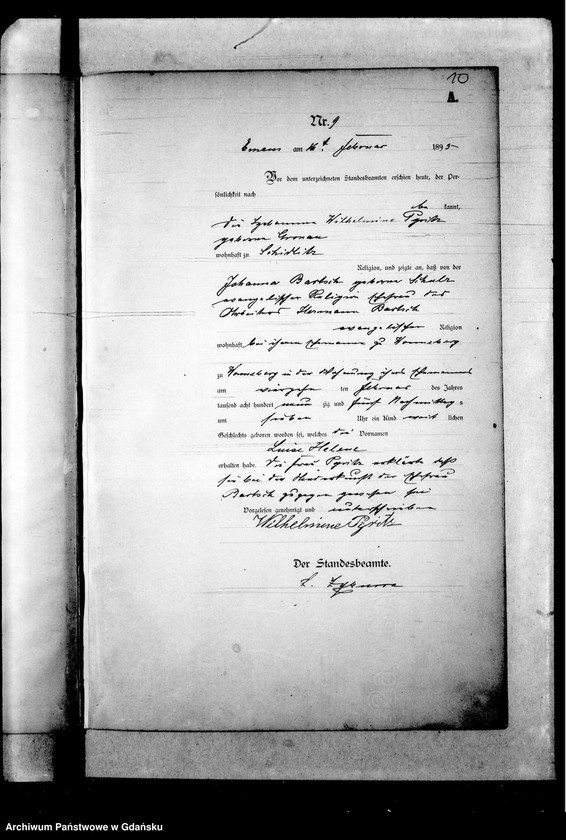 10
A.
Nr. 9
Emaus am 16 t Februar 1895
Vor dem unterzeichneten Standesbeamten erschien heute, der Per-
sönlichkeit nach
be kannt,
die Hebamme Wilhelmine Pyritz
geborene Gronau
wohnhaft zu Schidlitz
Religion, und zeigte an, daß von der
Johanna Bartsch geborene Schulz
evangelischer Religion Ehefrau des
Arbeiters Hermann Bartsch
evangelischer Religion
wohnhaft bei ihrem Ehemanne zu Wonneberg
zu Wonneberg in der Wohnung ihres Ehemannes
am vierzehn ten Februar des Jahres
tausend acht hundert neun zig und fünf Nachmittags
um sieben Uhr ein Kind weib lichen
Geschlechts geboren worden sei, welches die Vornamen
Luise Helene
erhalten habe. Die Frau Pyritz erklärte daß
sie bei der Niederkunft der Ehefrau
Bartsch zugegen gewesen sei
Vorgelesen genehmigt und unterschrieben
Wilhelmine Pyritz
Der Standesbeamte.
Archiwum Państwowe w Gdańsku